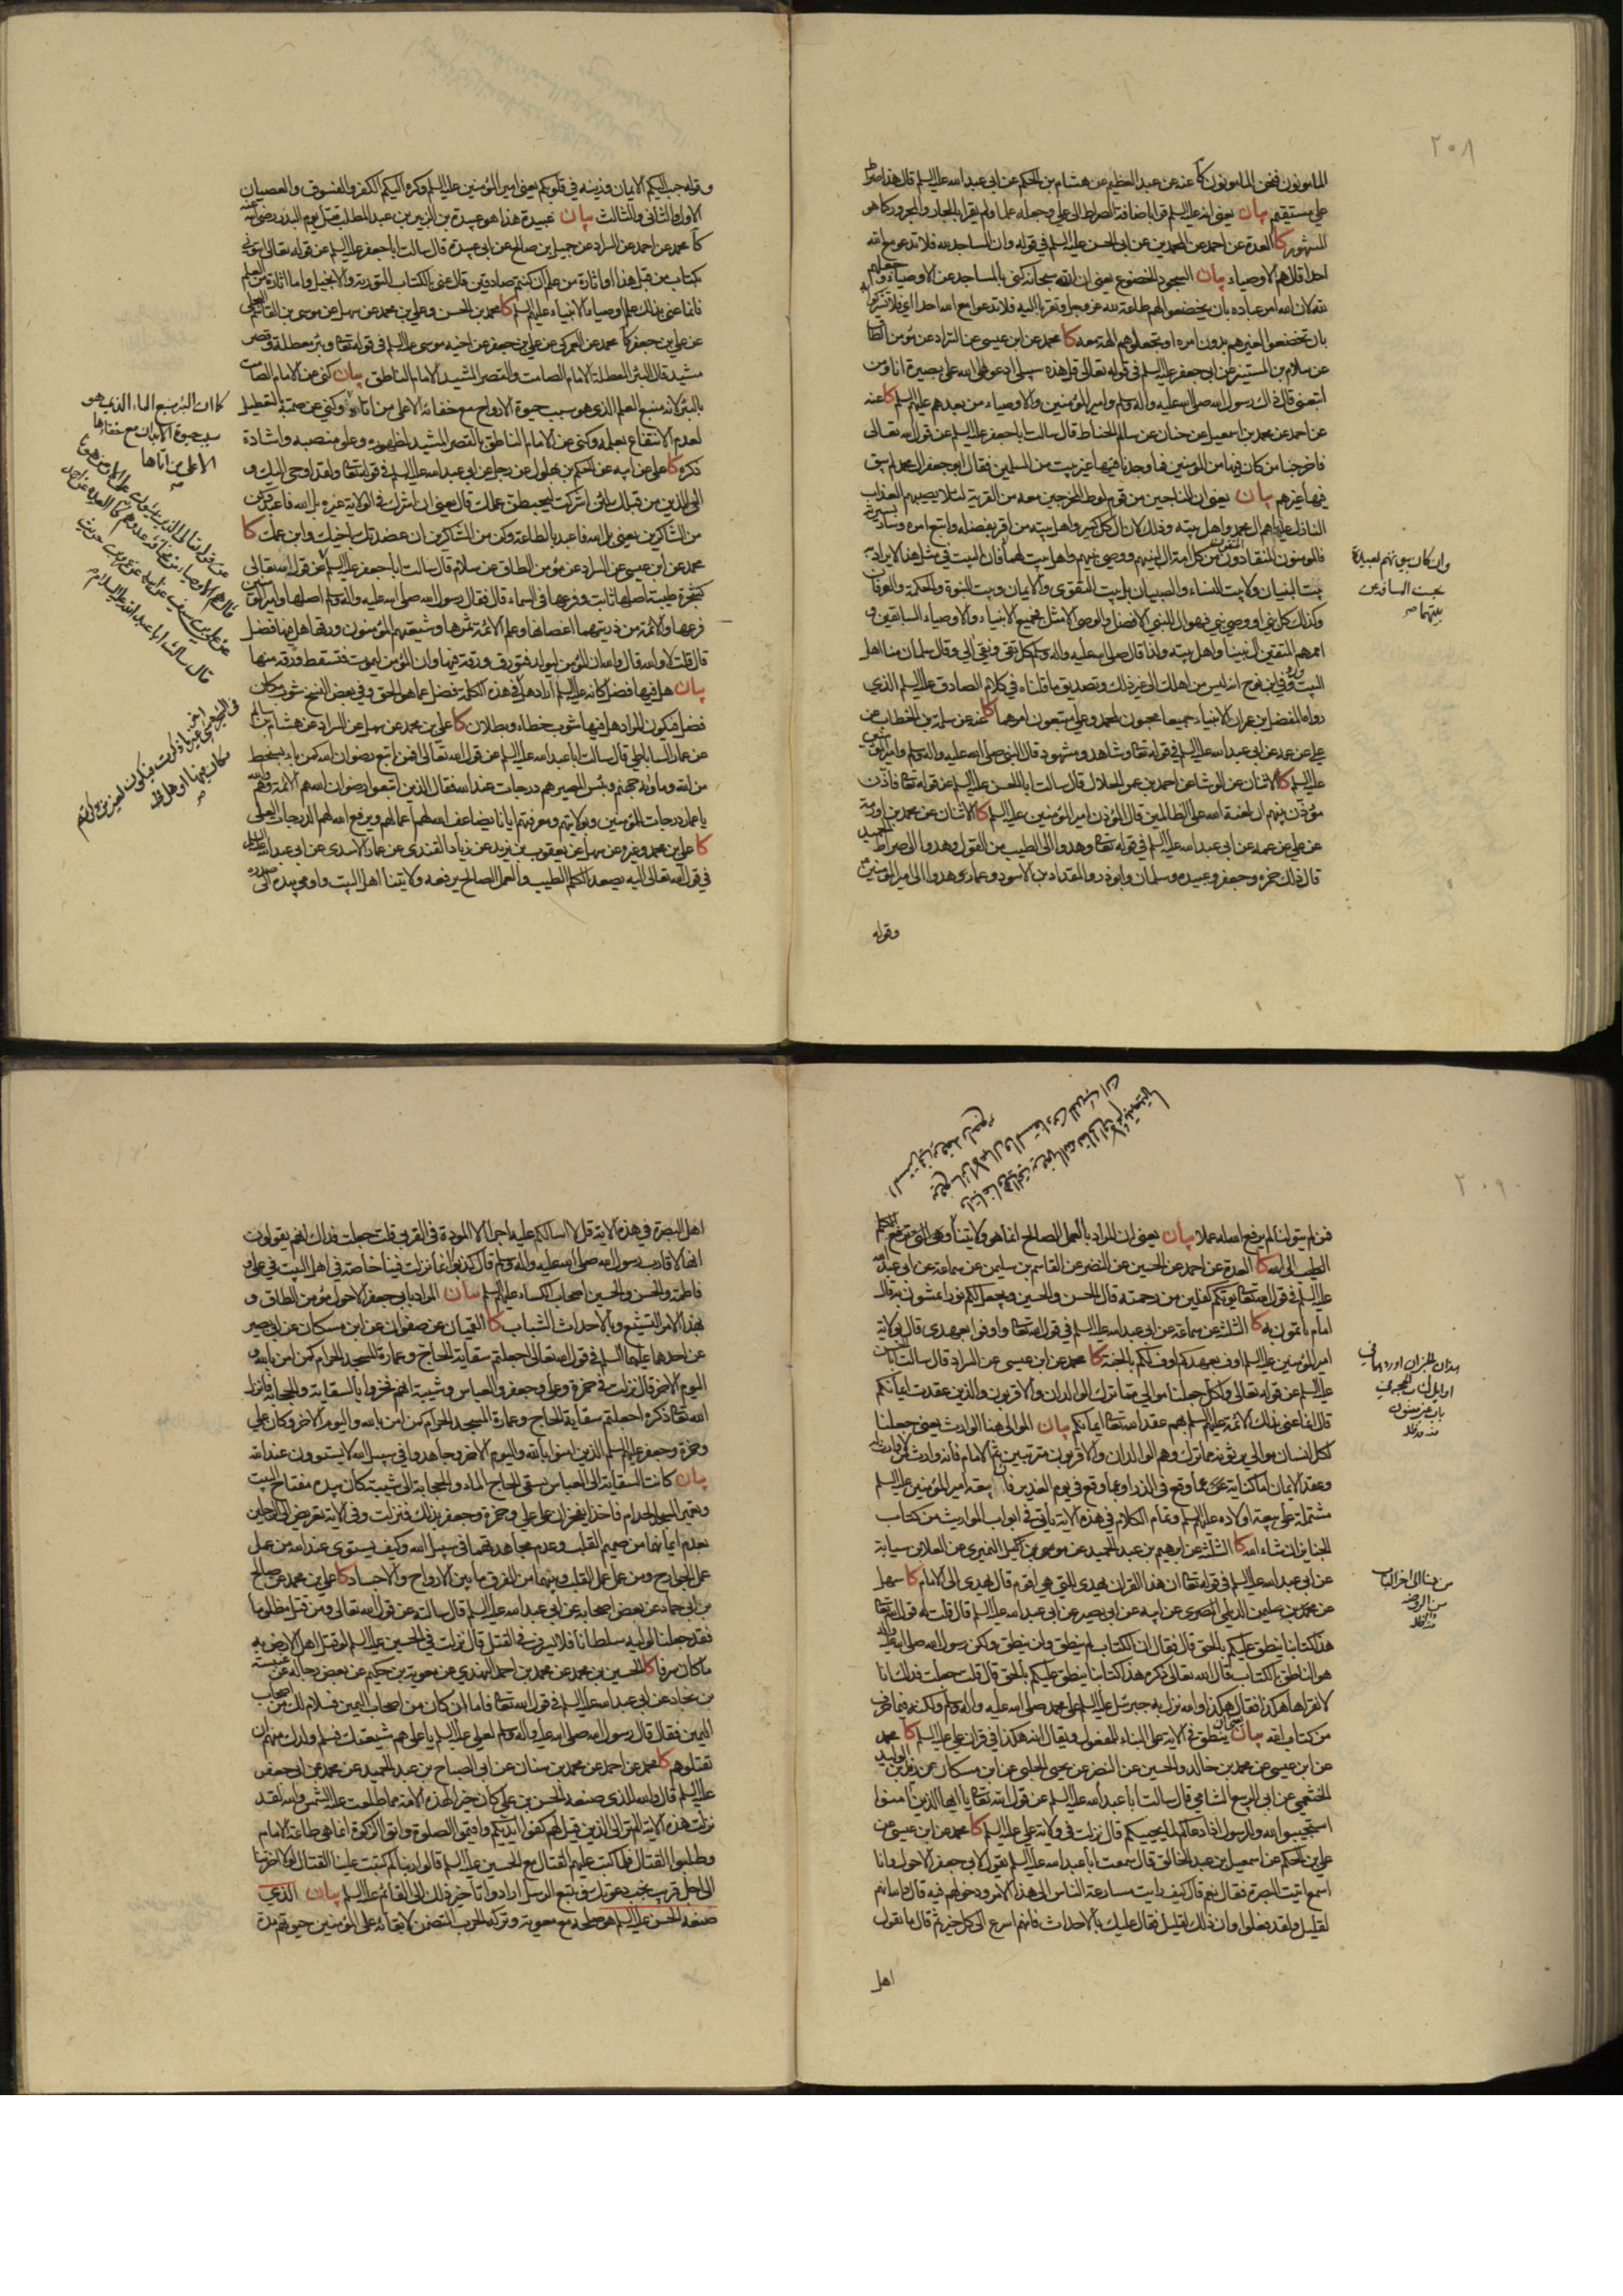 ٢٠٨
المأمونون فنحن المأمونون كا عنه عن عبد العظيم عن هشام بن الحكم عن ابي عبد الله عليه السلم قال هذا صراط
علي مستقيم بيان يعني انه عليه السلم قرأ باضافة الصراط الى علي وجعله علما ولم يقرأ بالجار والمجرور كما هو
المشهور كا العدة عن احمد عن المحمدين عن ابي الحسن عليه السلم في قوله وان المساجد لله فلا تدعوا مع الله
احدا قال هم الاوصياء بيان السجود الخضوع يعني ان الله سبحانه كنى بالمساجد عن الاوصياء وجعلهم
لله لان الله امر عباده بان يخضعوا لهم طاعة لله عز وجل وتقربا اليه فلا تدعوا مع الله احدا اي فلا تشركوا
بان تخضعوا لغيرهم بدون امره او تجعلوهم الهة معه كا محمد عن ابن عيسى عن السراد عن مؤمن الطاق
عن سلام بن المستنير عن ابي جعفر عليه السلم في قوله تعالى قل هذه سبيلي ادعو الى الله على بصيرة انا ومن
اتبعني قال ذاك رسول الله صلى الله عليه واله وسلم وامير المؤمنين والاوصياء من بعدهم عليهم السلم كا عنه
عن احمد عن محمد بن اسمعيل عن حنان عن سالم الحناط قال سالت ابا جعفر عليه السلم عن قول الله تعالى
فاخرجنا من كان فيها من المؤمنين فما وجدنا فيها غير بيت من المسلمين فقال ابو جعفر ال محمد لم يبق
فيها غيرهم بيان يعني ان الناجين من قوم لوط المخرجين معه من القرية لئلا يصيبهم العذاب
النازل عليها هم ال محمد واهل بيته وذلك لان ال كل كبير واهل بيته من اقر بفضله واتبع امره وسار بسيرته
فالمؤمنون المنقادون المتقون من كل امة ال لنبيهم ووصي نبيهم واهل بيت لهما فان البيت في مثل هذا لا يراد به
بيت البنيان ولا بيت النساء والصبيان بل بيت التقوى والايمان وبيت النبوة والحكمة والعرفان
وكذلك كل نبي او وصي نبي فهو ال للنبي الافضل والوصي الامثل فجميع الانبياء والاوصياء السابقين و
اممهم المتقين ال نبينا واهل بيته ولذا قال صلى الله عليه واله وسلم كل تقي ونقي الي وقال سلمان منا اهل
البيت وورد في ابن نوح انه ليس من اهلك الى غير ذلك وتصديق ما قلناه في كلام الصادق عليه السلم الذي
رواه المفضل بن عمر ان الانبياء جميعا محبون لمحمد وعلي متبعون امرهما كا عنه عن سلمة بن الخطاب عن
علي عن عمه عن ابي عبد الله عليه السلم في قوله تعالى وشاهد ومشهود قال النبي صلى الله عليه واله وسلم وامير المؤمنين
عليه السلم كا الاثنان عن الوشا عن احمد بن عمر الحلال قال سالت ابا الحسن عليه السلم عن قوله تعالى فاذن
مؤذن بينهم ان لعنة الله على الظالمين قال المؤذن امير المؤمنين عليه السلم كا الاثنان عن محمد بن اورمة
عن علي عن عمه عن ابي عبد الله عليه السلم في قوله تعالى وهدوا الى الطيب من القول وهدوا الى صراط الحميد
قال ذلك حمزة وجعفر وعبيدة وسلمان وابو ذر والمقداد بن الاسود وعمار هدوا الى امير المؤمنين ع
وقوله
وقوله حبب اليكم الايمان وزينه في قلوبكم يعني امير المؤمنين عليه السلم وكره اليكم الكفر والفسوق والعصيان
الاول والثاني والثالث بيان عبيدة هذا هو عبيدة بن الزبير بن عبد المطلب قتل يوم البدر رضي الله عنه
كا محمد عن احمد عن السراد عن جميل بن صالح عن ابي عبيدة قال سالت ابا جعفر عليه السلم عن قوله تعالى ائتوني
بكتاب من قبل هذا او اثارة من علم ان كنتم صادقين قال عنى بالكتاب التورية والانجيل واما اثارة من العلم
فانما عنى بذلك علم اوصياء الانبياء عليهم السلم كا محمد بن الحسن وعلي بن محمد عن سهل عن موسى بن القاسم البجلي
عن علي بن جعفر كا محمد عن العمركي عن علي بن جعفر عن اخيه موسى عليه السلم في قوله تعالى وبئر معطلة وقصر
مشيد قال البئر المعطلة الامام الصامت والقصر المشيد الامام الناطق بيان كنى عن الامام الصامت
بالبئر لانه منبع العلم الذي هو سبب حيوة الارواح مع خفائه الا على من اتاه وكنى عن صمته بالتعطيل
لعدم الانتفاع بعلمه وكنى عن الامام الناطق بالقصر المشيد لظهوره وعلو منصبه واشادة
ذكره كا علي عن ابيه عن الحكم بن بهلول عن رجل عن ابي عبد الله عليه السلم في قوله تعالى ولقد اوحي اليك و
الى الذين من قبلك لئن اشركت ليحبطن عملك قال يعني ان اشركت في الولاية غيره بل الله فاعبد وكن
من الشاكرين يعني بل الله فاعبد بالطاعة وكن من الشاكرين ان عضدتك باخيك وابن عمك كا
محمد عن ابن عيسى عن السراد عن مؤمن الطاق عن سلام قال سالت ابا جعفر عليه السلم عن قول الله تعالى
كشجرة طيبة اصلها ثابت وفرعها في السماء قال فقال رسول الله صلى الله عليه واله وسلم اصلها وامير المؤمنين
فرعها والائمة من ذريتهما اغصانها وعلم الائمة ثمرها وشيعتهم المؤمنون ورقها هل فيها فضل
قال قلت لا والله قال والله ان المؤمن ليولد فتورق ورقة فيها وان المؤمن ليموت فتسقط ورقة منها
بيان هل فيها فضل كانه عليه السلم اراد هل في هذه الكلمة فضل عما هو الحق وفي بعض النسخ شوب مكان
فضل فيكون المراد هل فيها شوب خطاء وبطلان كا علي بن محمد عن سهل عن السراد عن هشام بن سالم
عن عمار الساباطي قال سالت ابا عبد الله عليه السلم عن قول الله تعالى افمن اتبع رضوان الله كمن باء بسخط
من الله وماواه جهنم وبئس المصير هم درجات عند الله فقال الذين اتبعوا رضوان الله هم الائمة وهم والله
يا عمار درجات المؤمنين وبولايتهم ومعرفتهم ايانا يضاعف الله لهم اعمالهم ويرفع الله لهم الدرجات العلى
كا علي بن محمد وغيره عن سهل عن يعقوب بن يزيد عن زياد القندي عن عمار الاسدي عن ابي عبد الله عليه السلم
في قول الله تعالى اليه يصعد الكلم الطيب والعمل الصالح يرفعه ولايتنا اهل البيت واومى بيده الى صدره
كما ان البئر منبع الماء الذي هو
سبب حيوة الابدان مع خفائها
الا على من اتاها
٢٠٩
فمن لم يتولنا لم يرفع الله له عملا بيان يعني ان المراد بالعمل الصالح انما هو ولايتنا وهي التي ترفع الكلم
الطيب الى الله كا العدة عن احمد عن الحسين عن النضر عن القاسم بن سليمن عن سماعة عن ابي عبد الله
عليه السلم في قول الله تعالى يؤتكم كفلين من رحمته قال الحسن والحسين ويجعل لكم نورا تمشون به قال
امام تأتمون به كا الثلثة عن سماعة عن ابي عبد الله عليه السلم في قول الله تعالى واوفوا بعهدي قال بولاية
امير المؤمنين عليه السلم اوف بعهدكم اوف لكم بالجنة كا محمد عن ابن عيسى عن السراد قال سالت ابا الحسن
عليه السلم عن قوله تعالى ولكل جعلنا موالي مما ترك الوالدان والاقربون والذين عقدت ايمانكم
قال انما عنى بذلك الائمة عليهم السلم بهم عقد الله تعالى ايمانكم بيان الموالي هنا الوارث يعني جعلنا
لكل انسان موالي يرثونه مما ترك وهم الوالدان والاقربون مترتبين ثم الامام فانه وارث من لا وارث له
وعقد الايمان اما كناية عما وقع في الذر او عما وقع في يوم الغدير فان بيعة امير المؤمنين عليه السلم
مشتملة على بيعة اولاده عليهم السلم وتمام الكلام في هذه الاية ياتي في ابواب المواريث من كتاب
الجنائز ان شاء الله كا الثلثة عن ابرهيم بن عبد الحميد عن موسى بن اكيل النميري عن العلا بن سيابة
عن ابي عبد الله عليه السلم في قوله تعالى ان هذا القران يهدي للتي هي اقوم قال يهدي الى الامام كا سهل
عن محمد بن سليمن الديلمي المصري عن ابيه عن ابي بصير عن ابي عبد الله عليه السلم قال قلت له قول الله تعالى
هذا كتابنا ينطق عليكم بالحق قال فقال ان الكتاب لم ينطق ولن ينطق ولكن رسول الله صلى الله عليه واله
هو الناطق بالكتاب قال الله تعالى ذكره هذا كتابنا ينطق عليكم بالحق قال قلت جعلت فداك انا
لا نقراها هكذا فقال هكذا والله نزل به جبرئيل عليه السلم على محمد صلى الله عليه واله وسلم ولكنه فيما حرف
من كتاب الله بيان ينطق في الاية على البناء للمفعول ويقال انه هكذا في قران علي عليه السلم كا محمد
عن ابن عيسى عن محمد بن خالد والحسين عن النضر عن يحيى الحلبي عن ابن مسكان عن زيد بن الوليد
الخثعمي عن ابي الربيع الشامي قال سالت ابا عبد الله عليه السلم عن قول الله تعالى يا ايها الذين امنوا
استجيبوا لله وللرسول اذا دعاكم لما يحييكم قال نزلت في ولاية علي عليه السلم كا محمد عن ابن عيسى عن
علي بن الحكم عن اسمعيل بن عبد الخالق قال سمعت ابا عبد الله عليه السلم يقول لابي جعفر الاحول وانا
اسمع اتيت البصرة فقال نعم قال كيف رايت مسارعة الناس الى هذا الامر ودخولهم فيه قال والله انهم
لقليل ولقد فعلوا وان ذلك لقليل فقال عليك بالاحداث فانهم اسرع الى كل خير ثم قال ما يقول
اهل
اهل البصرة في هذه الاية قل لا اسالكم عليه اجرا الا المودة في القربى قلت جعلت فداك انهم يقولون
انها لاقارب رسول الله صلى الله عليه واله وسلم قال كذبوا انما نزلت فينا خاصة في اهل البيت في علي و
فاطمة والحسن والحسين اصحاب الكساء عليهم السلم بيان المراد بابي جعفر الاحول مؤمن الطاق و
بهذا الامر التشيع وبالاحداث الشباب كا القميان عن صفوان عن ابن مسكان عن ابي بصير
عن احدهما عليهما السلم في قول الله تعالى اجعلتم سقاية الحاج وعمارة المسجد الحرام كمن امن بالله و
اليوم الاخر قال نزلت في حمزة وعلي وجعفر والعباس وشيبة انهم فخروا بالسقاية والحجابة فانزل
الله تعالى ذكره اجعلتم سقاية الحاج وعمارة المسجد الحرام كمن امن بالله واليوم الاخر وكان علي
وحمزة وجعفر عليهم السلم الذين امنوا بالله واليوم الاخر وجاهدوا في سبيل الله لا يستوون عند الله
بيان كانت السقاية الى العباس يسقي الحاج الماء والحجابة الى شيبة كان بيده مفتاح البيت
وتعمير المسجد الحرام فاخذا يفخران على علي وحمزة وجعفر بذلك فنزلت وفي الاية تعريض الى الرجلين
بعدم ايمانهما من صميم القلب وعدم مجاهدتهما في سبيل الله وكيف يستوي عند الله من عمل
عمل الجوارح ومن عمل عمل القلب وبينهما من الفرق ما بين الارواح والاجساد كا علي بن محمد عن صالح
بن ابي حماد عن بعض اصحابه عن ابي عبد الله عليه السلم قال سالته عن قول الله تعالى ومن قتل مظلوما
فقد جعلنا لوليه سلطانا فلا يسرف في القتل قال نزلت في الحسين عليه السلم لو قتل اهل الارض به
ما كان سرفا كا الحسين بن محمد عن محمد بن احمد النهدي عن معوية بن حكيم عن بعض رجاله عن عنبسة
بن بجاد عن ابي عبد الله عليه السلم في قول الله تعالى فاما ان كان من اصحاب اليمين فسلام لك من اصحاب
اليمين فقال قال رسول الله صلى الله عليه واله وسلم لعلي عليه السلم يا علي هم شيعتك فسلم ولدك منهم ان
تقتلوهم كا محمد عن احمد عن محمد بن سنان عن ابي الصباح بن عبد الحميد عن محمد عن ابي جعفر
عليه السلم قال والله للذي صنعه الحسن بن علي كان خيرا لهذه الامة مما طلعت عليه الشمس والله لقد
نزلت هذه الاية الم تر الى الذين قيل لهم كفوا ايديكم واقيموا الصلوة واتوا الزكوة انما هي طاعة الامام
وطلبوا القتال فلما كتب عليهم القتال مع الحسين عليه السلم قالوا ربنا لم كتبت علينا القتال لولا اخرتنا
الى اجل قريب نجب دعوتك ونتبع الرسل ارادوا تاخير ذلك الى القائم عليه السلم بيان الذي
صنعه الحسن عليه السلم هو صلحه مع معوية وتركه الحرب المتضمن لابقائه على المؤمنين حيوتهم مدة